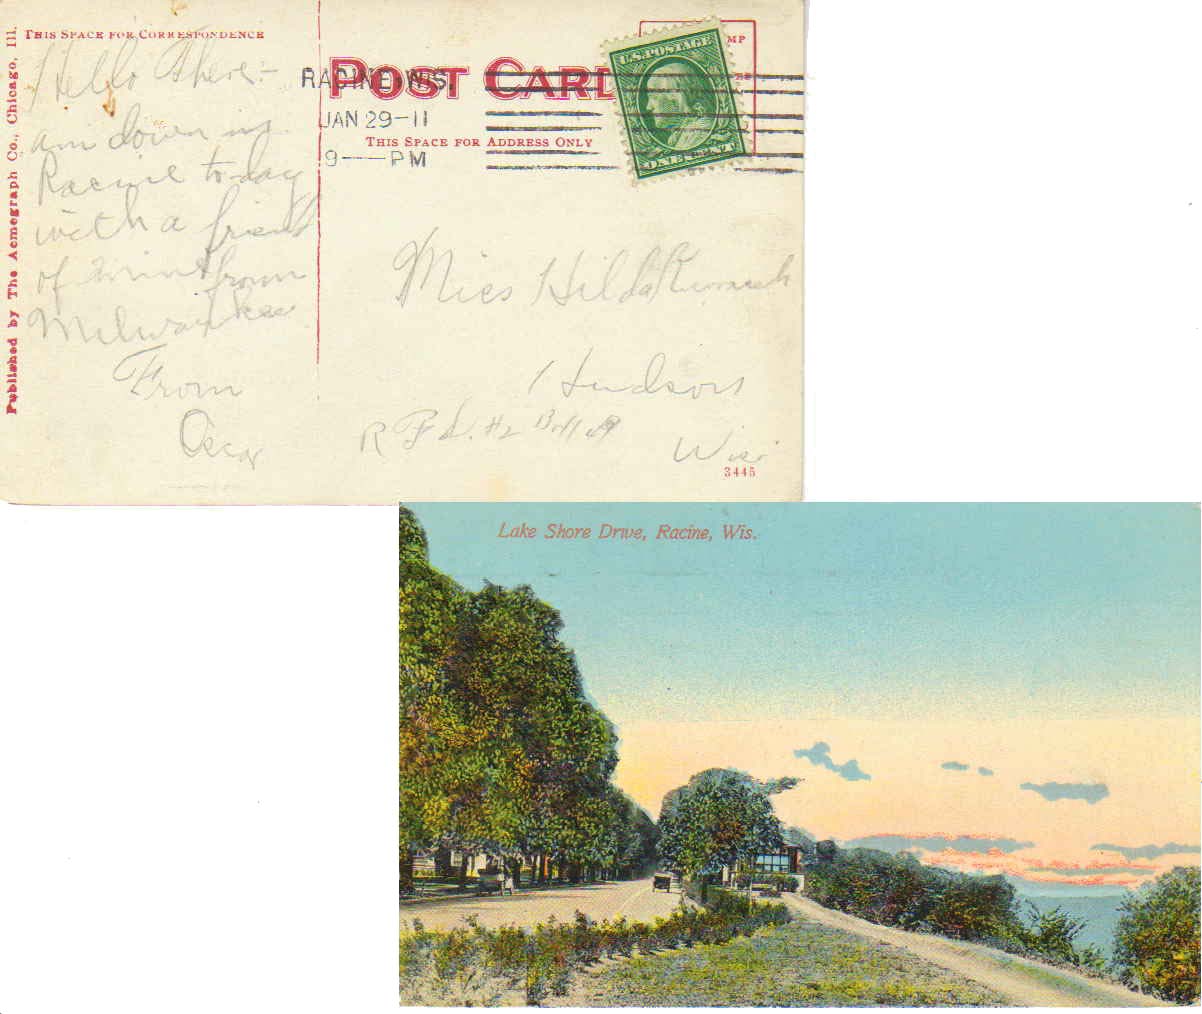 THIS SPACE FOR CORRESPONDENCE
Hello There:-
am down in
Racine to-day
with a friend
of mine from
Milwaukee
From
Oscar
Published by The Acmegraph Co., Chicago, Ill.
POST CARD
THIS SPACE FOR ADDRESS ONLY
RACINE, WIS.
JAN 29-11
9 — PM
U.S. POSTAGE
ONE CENT
Miss Hilda
Hudson
R F D. #2 Box
Wis.
3445
Lake Shore Drive, Racine, Wis.